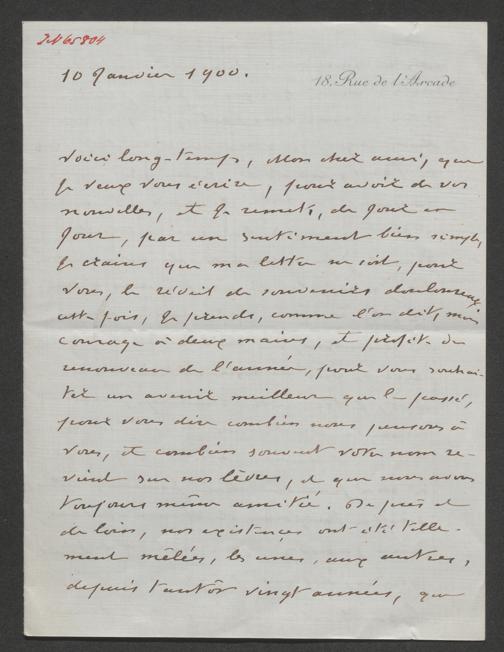 JN65804
10 Janvier 1900.
18, Rue de l'Arcade
Voici long-temps, Mon cher ami, que
je veux vous écrire, pour avoir de vos
nouvelles, et je remets, de jour en
jour, par un sentiment bien simple,
je crains que ma lettre ne soit, pour
vous, le réveil de souvenirs douloureux
cette fois, je prends, comme l'on dit, mon
courage à deux mains, et profite du
renouveau de l'année, pour vous souhai-
ter un avenir meilleur que le passé,
pour vous dire combien nous pensons à
vous, et combien souvent votre nom re-
vient sur nos lèvres, et que nous avons
toujours même amitié. De près et
de loin, nos existences ont été telle-
ment mêlées, les unes, aux autres,
depuis tantôt vingt années, que